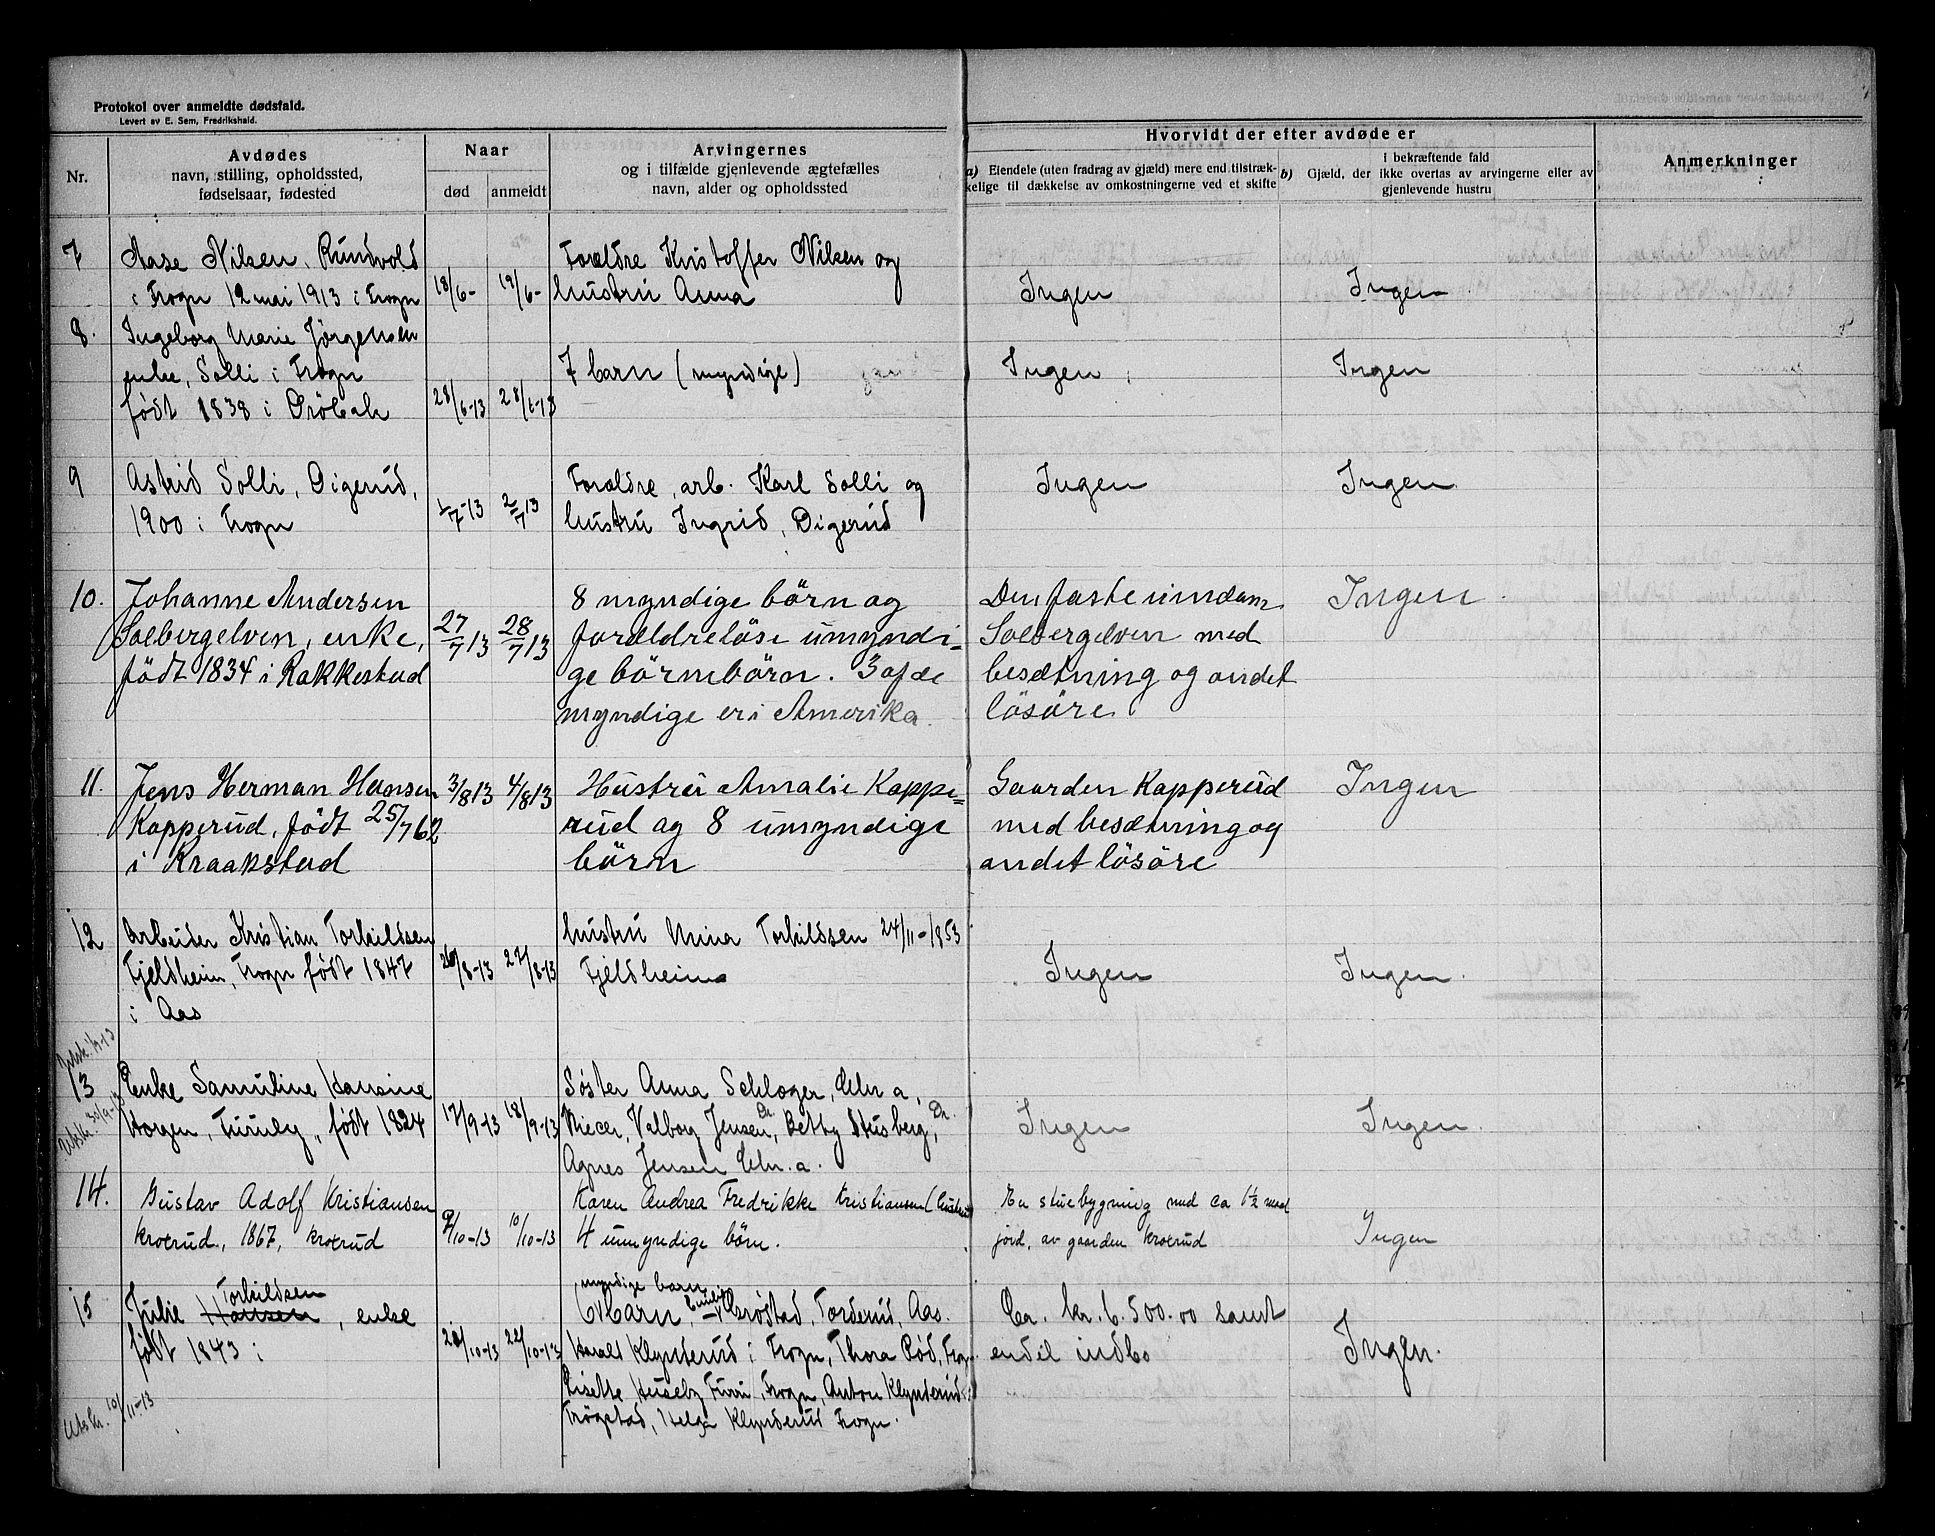 Protokol over anmeldte dødsfald.
Levert av E. Sem, Fredrikshald.
Nr.
Avdødes
navn, stilling, opholdssted,
fødselsaar, fødested
Naar
død
anmeldt
Arvingernes
og i tilfælde gjenlevende ægtefælles
navn, alder og opholdssted
Hvorvidt der efter avdøde er
a) Eiendele (uten fradrag av gjæld) mere end tilstræk-
kelige til dækkelse av omkostningerne ved et skifte
b) Gjæld, der
i bekræftende fald
ikke overtas av arvingerne eller av
gjenlevende hustru
Anmerkninger
7
Aase Nilsen, Rundvold
i Frogn 12 mai 1913 i Frogn
18/6-
19/6-
Forældre Kristoffer Nilsen og
hustru Anna
Ingen
Ingen
8.
Ingeborg Marie Jørgensen
enke, Solli i Frogn
født 1838 i Drøbak
28/6-13
28/6-13
7 barn (myndige)
Ingen
Ingen
9
Astrid Solli, Digerud,
1900 i Frogn
1/7-13
2/7 13
Forældre, arb. Karl Solli og
hustru Ingrid, Digerud
Ingen
Ingen
10.
Johanne Andersen
Solbergelven, enke,
født 1834 i Rakkestad
27/7 13
28/7 13
8 myndige börn og
forældrelöse umyndi-
ge börnebörn. 3 af de
myndige er i Amerika.
Den faste eiendom
Solbergelven med
besætning og andet
lösöre.
Ingen
11.
Jens Herman Hansen
Kopperud, født 25/7 62
i Kraakstad
3/8 13
4/8 13
Hustru Amalie Koppe-
rud og 8 umyndige
börn
Gaarden Kopperud
med besætning og
andet lösöre
Ingen
12
Arbeider Kristian Torkildsen
Fjeldheim, Frogn født 1847
i Aas
26/8-13
27/8-13
hustru Mina Torkildsen 24/11-1853
Fjeldheim
Ingen
Ingen.
13
Enke Samuline Hansine
Horgen, født 1824
17/9-13
18/9-13
Søster Anna Schloger, Chr. a,
Niecer, Valborg Jensen, Dr. Betty Stusberg, Dr.
Agnes Jensen Chr. a.
Ingen
Ingen.
Utskr. 30/9-13
14.
Gustav Adolf Kristiansen
Krokrud, 1867, Krokrud
9/10-13
10/10-13
Karen Andrea Fredrikke Kristiansen (hustru
4 umyndige börn.
En stuebygning med ca 1½ maal
jord, av gaarden Krokrud
Ingen
15
Julie Hansen Torkildsen, enke
født 1843 i
20/10-13
22/10-13
myndige barn
6 barn, Brøstad, Torderud, Aas.
Harald Klynderud i Frogn, Thora Rød, Frogn
Lisette Huseby Furu, Frogn, Anton Klynderud i
Trøgstad, Helga Klynderud Frogn.
Ca. kr. 6.500.00 samt
endel indbo
Ingen.
Utskr. 10/11-13